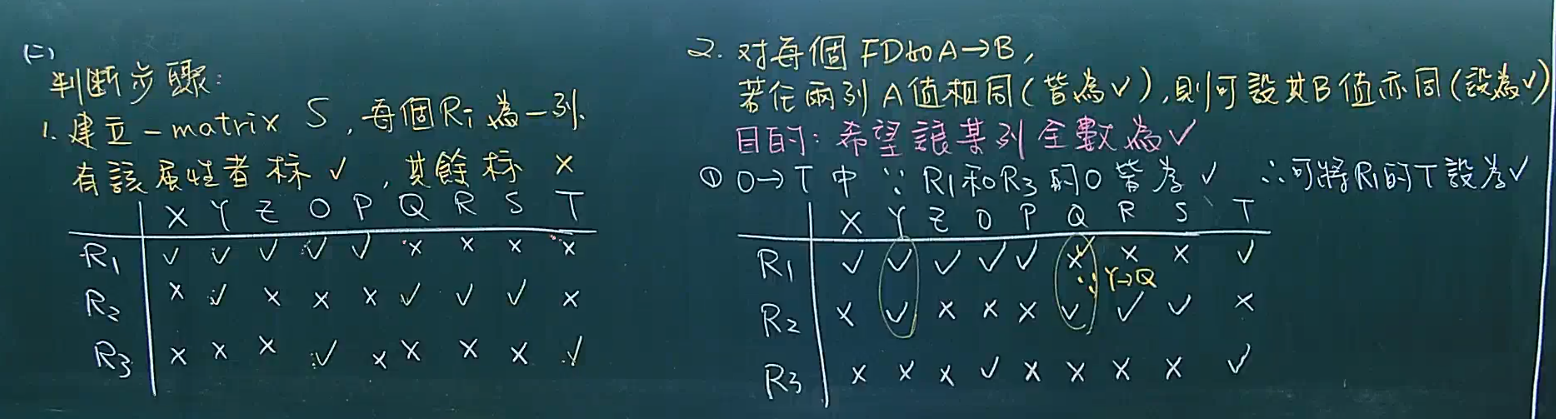 (二)
判斷步驟:
1. 建立一 matrix S, 每個Ri為一列.
有該屬性者標 ✓, 其餘標 ×
X Y Z O P Q R S T
R1 ✓ ✓ ✓ ✓ ✓ × × × ×
R2 × ✓ × × × ✓ ✓ ✓ ×
R3 × × × ✓ × × × × ✓
2. 对每個 FD如A→B,
若任兩列A值相同(皆為✓), 則可設其B值亦同(設為✓)
目的: 希望讓某列全數為✓
① O→T 中 ∵ R1和R3的O皆為✓ ∴可將R1的T設為✓
X Y Z O P Q R S T
R1 ✓ ✓ ✓ ✓ ✓ × ✓ × × ✓
∵ Y→Q
R2 × ✓ × × × ✓ ✓ ✓ ×
R3 × × × ✓ × × × × ✓